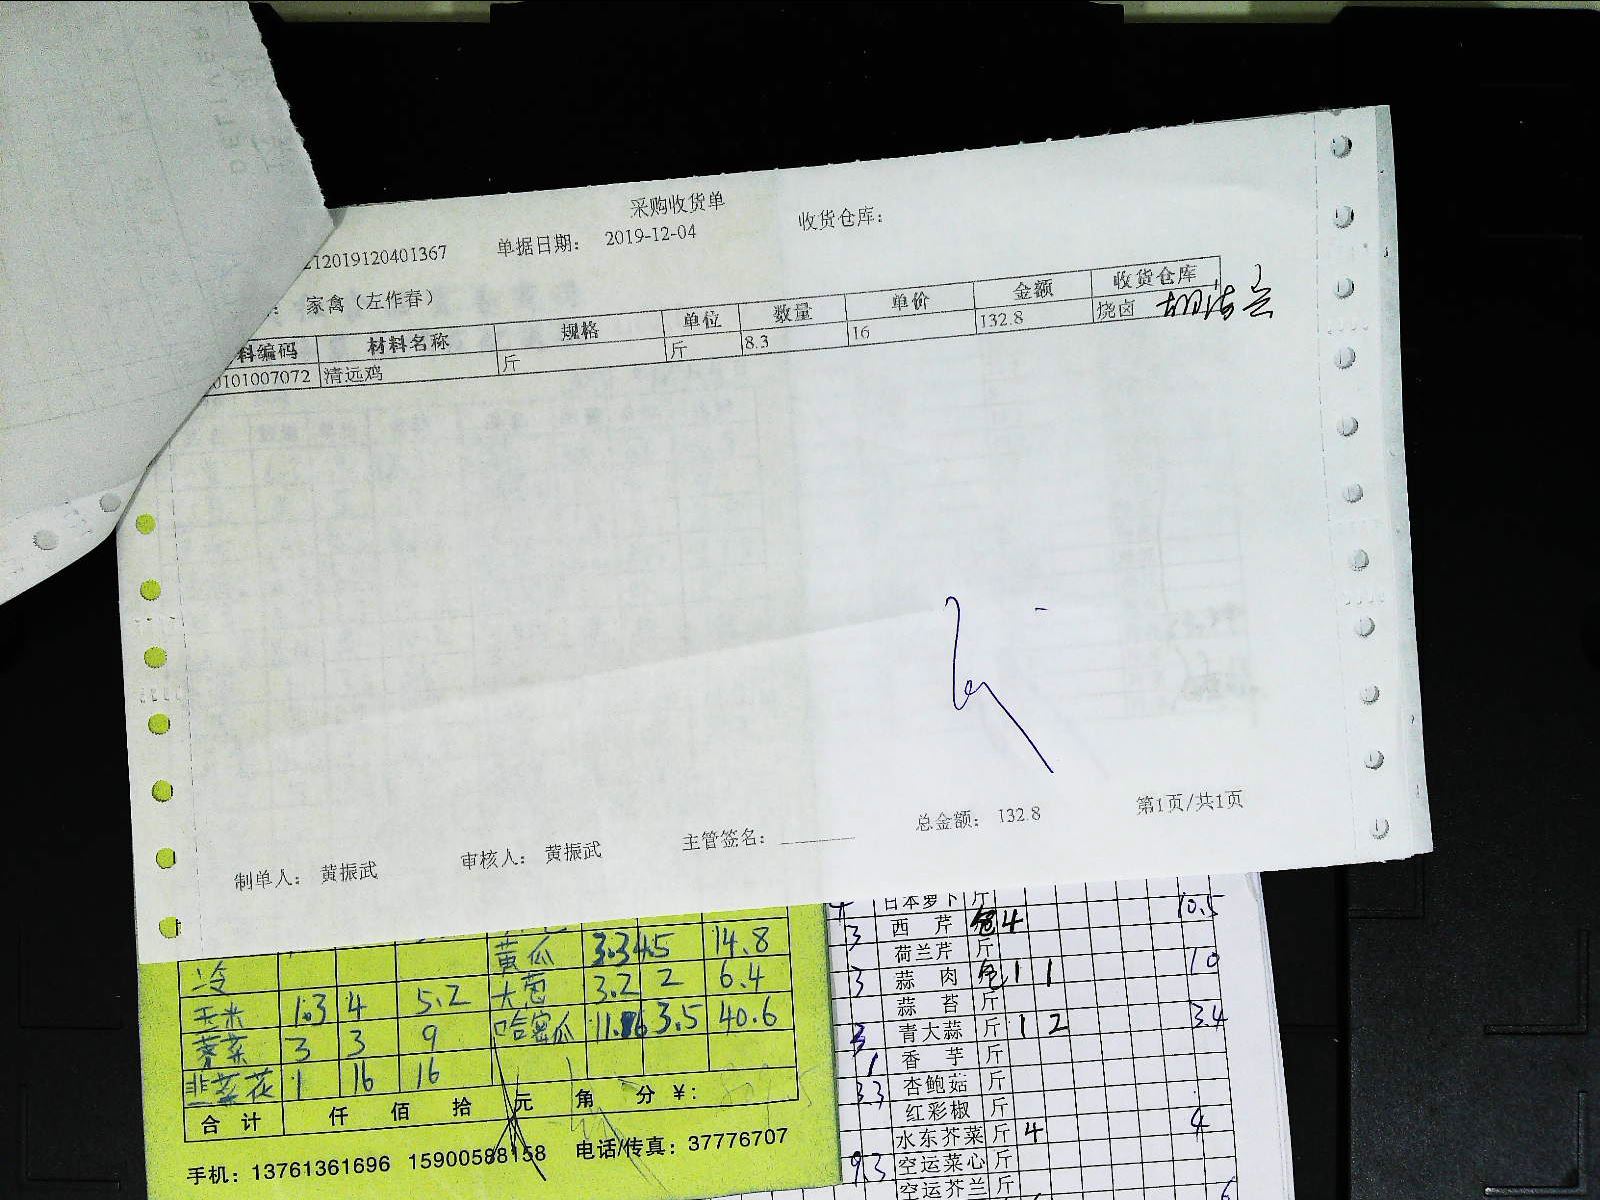 采购收货单
212019120401367 单据日期： 2019-12-04 收货仓库：
： 家禽（左作春）
料编码 材料名称 规格 单位 数量 单价 金额 收货仓库
0101007072 清远鸡 斤 斤 8.3 16 132.8 烧卤
制单人： 黄振武 审核人： 黄振武 主管签名： 总金额： 132.8 第1页/共1页
黄瓜 3.3 4.5 14.8
玉米 1.3 4 5.2 大葱 3.2 2 6.4
3 3 9 哈密瓜 11.6 3.5 40.6
韭菜花 1 16 16
合 计 仟 佰 拾 元 角 分 ¥：
手机：13761361696 15900588158 电话/传真：37776707
日本萝卜 斤 10.5
3 西 芹 包 4
荷兰芹 斤
3 蒜 肉 包 1 1 10
蒜 苔 斤
3 青大蒜 斤 1 2 3.4
1 香 芋 斤
3.3 杏鲍菇 斤
红彩椒 斤
水东芥菜 斤 4 4
9.3 空运菜心 斤
空运芥兰 斤 6